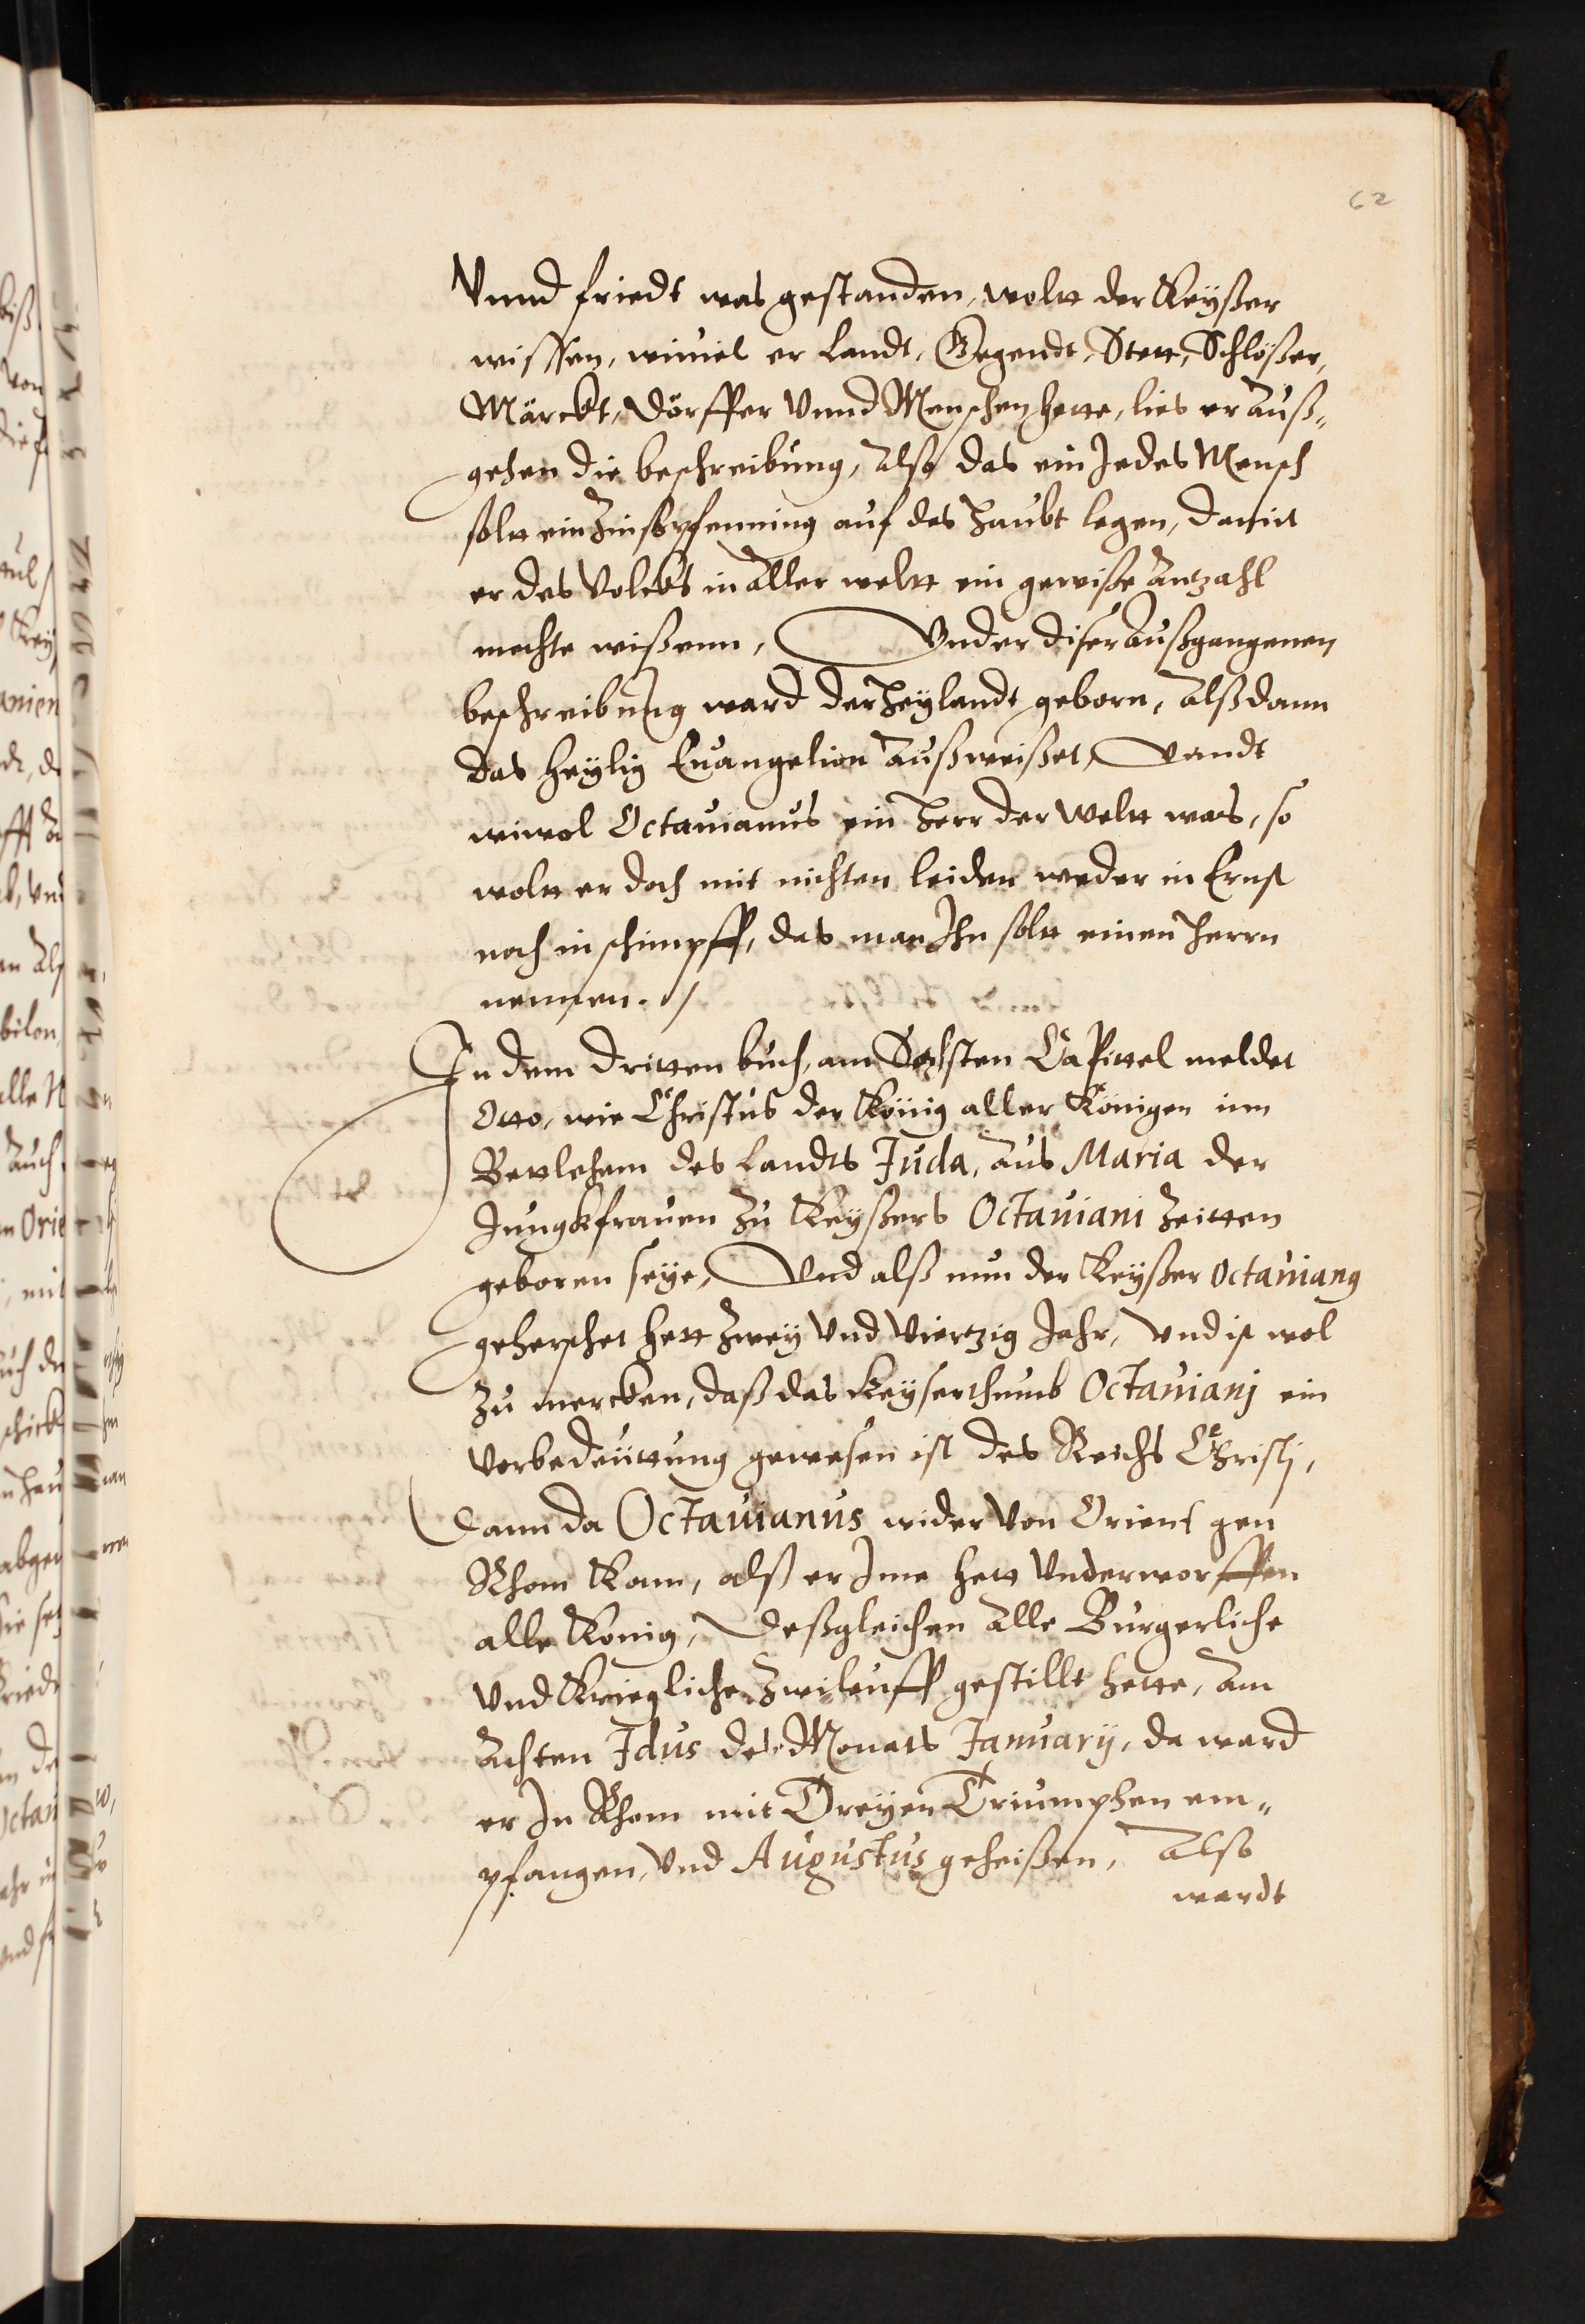 62
Vnnd friedt was gestanden, woltt der Keyßer
wissen, wiuiel er Landt, Gegendt, Stett, Schlößer,
Märckt, Dörffer Vnnd Menschen hette, lies er Auß„
gehen die beschreibung, Also das ein Jedes Mensch
soltt ein Zinßpfenning auf das Haubt legen, damit
er des Volcks in Aller weltt ein gewiße Antzahl
mechte wißenn, Vnder diser Außgangenen
beschreibung ward der Heylandt geborn, Alß dann
das heylig Euangelion Außweißet, Vandt
wiwol Octauianus ein Herr der Weltt was, so
woltt er doch mit nichten leiden weder in Ernst
noch in schimpff, das man Ihn soltt einen Herrn
nennen. /
In dem dritten buch, am Sechsten Capittel meldet
Otto, wie Christus der König aller Königen inn
Betlehem des Landts Juda, Aus Maria der
Jungkfrauen Zu Keyßers Octauiani Zeitten
geboren seye, Vnd alß nun der Keyßer Octauiang
geherschet hett Zwey Vnd Viertzig Jahr, Vnd ist wol
Zu mercken, daß das Keyserthumb Octauianj ein
Vorbedeüttung gewesen ist des Reichs Christj,
Dann da Octauianus wider Von Orient gen
Rhom Kam, alß er Jme hett Vnderworffen
alle König, Deßgleichen Alle Burgerliche
Vnd Kriegliche Zwileufft gestillt hette, Am
Achten Idus des Monats January, da ward
er In Rhom mit Dreyen Triumphen em„
pfangen, Vnd Augustus geheißen, Also
wardt